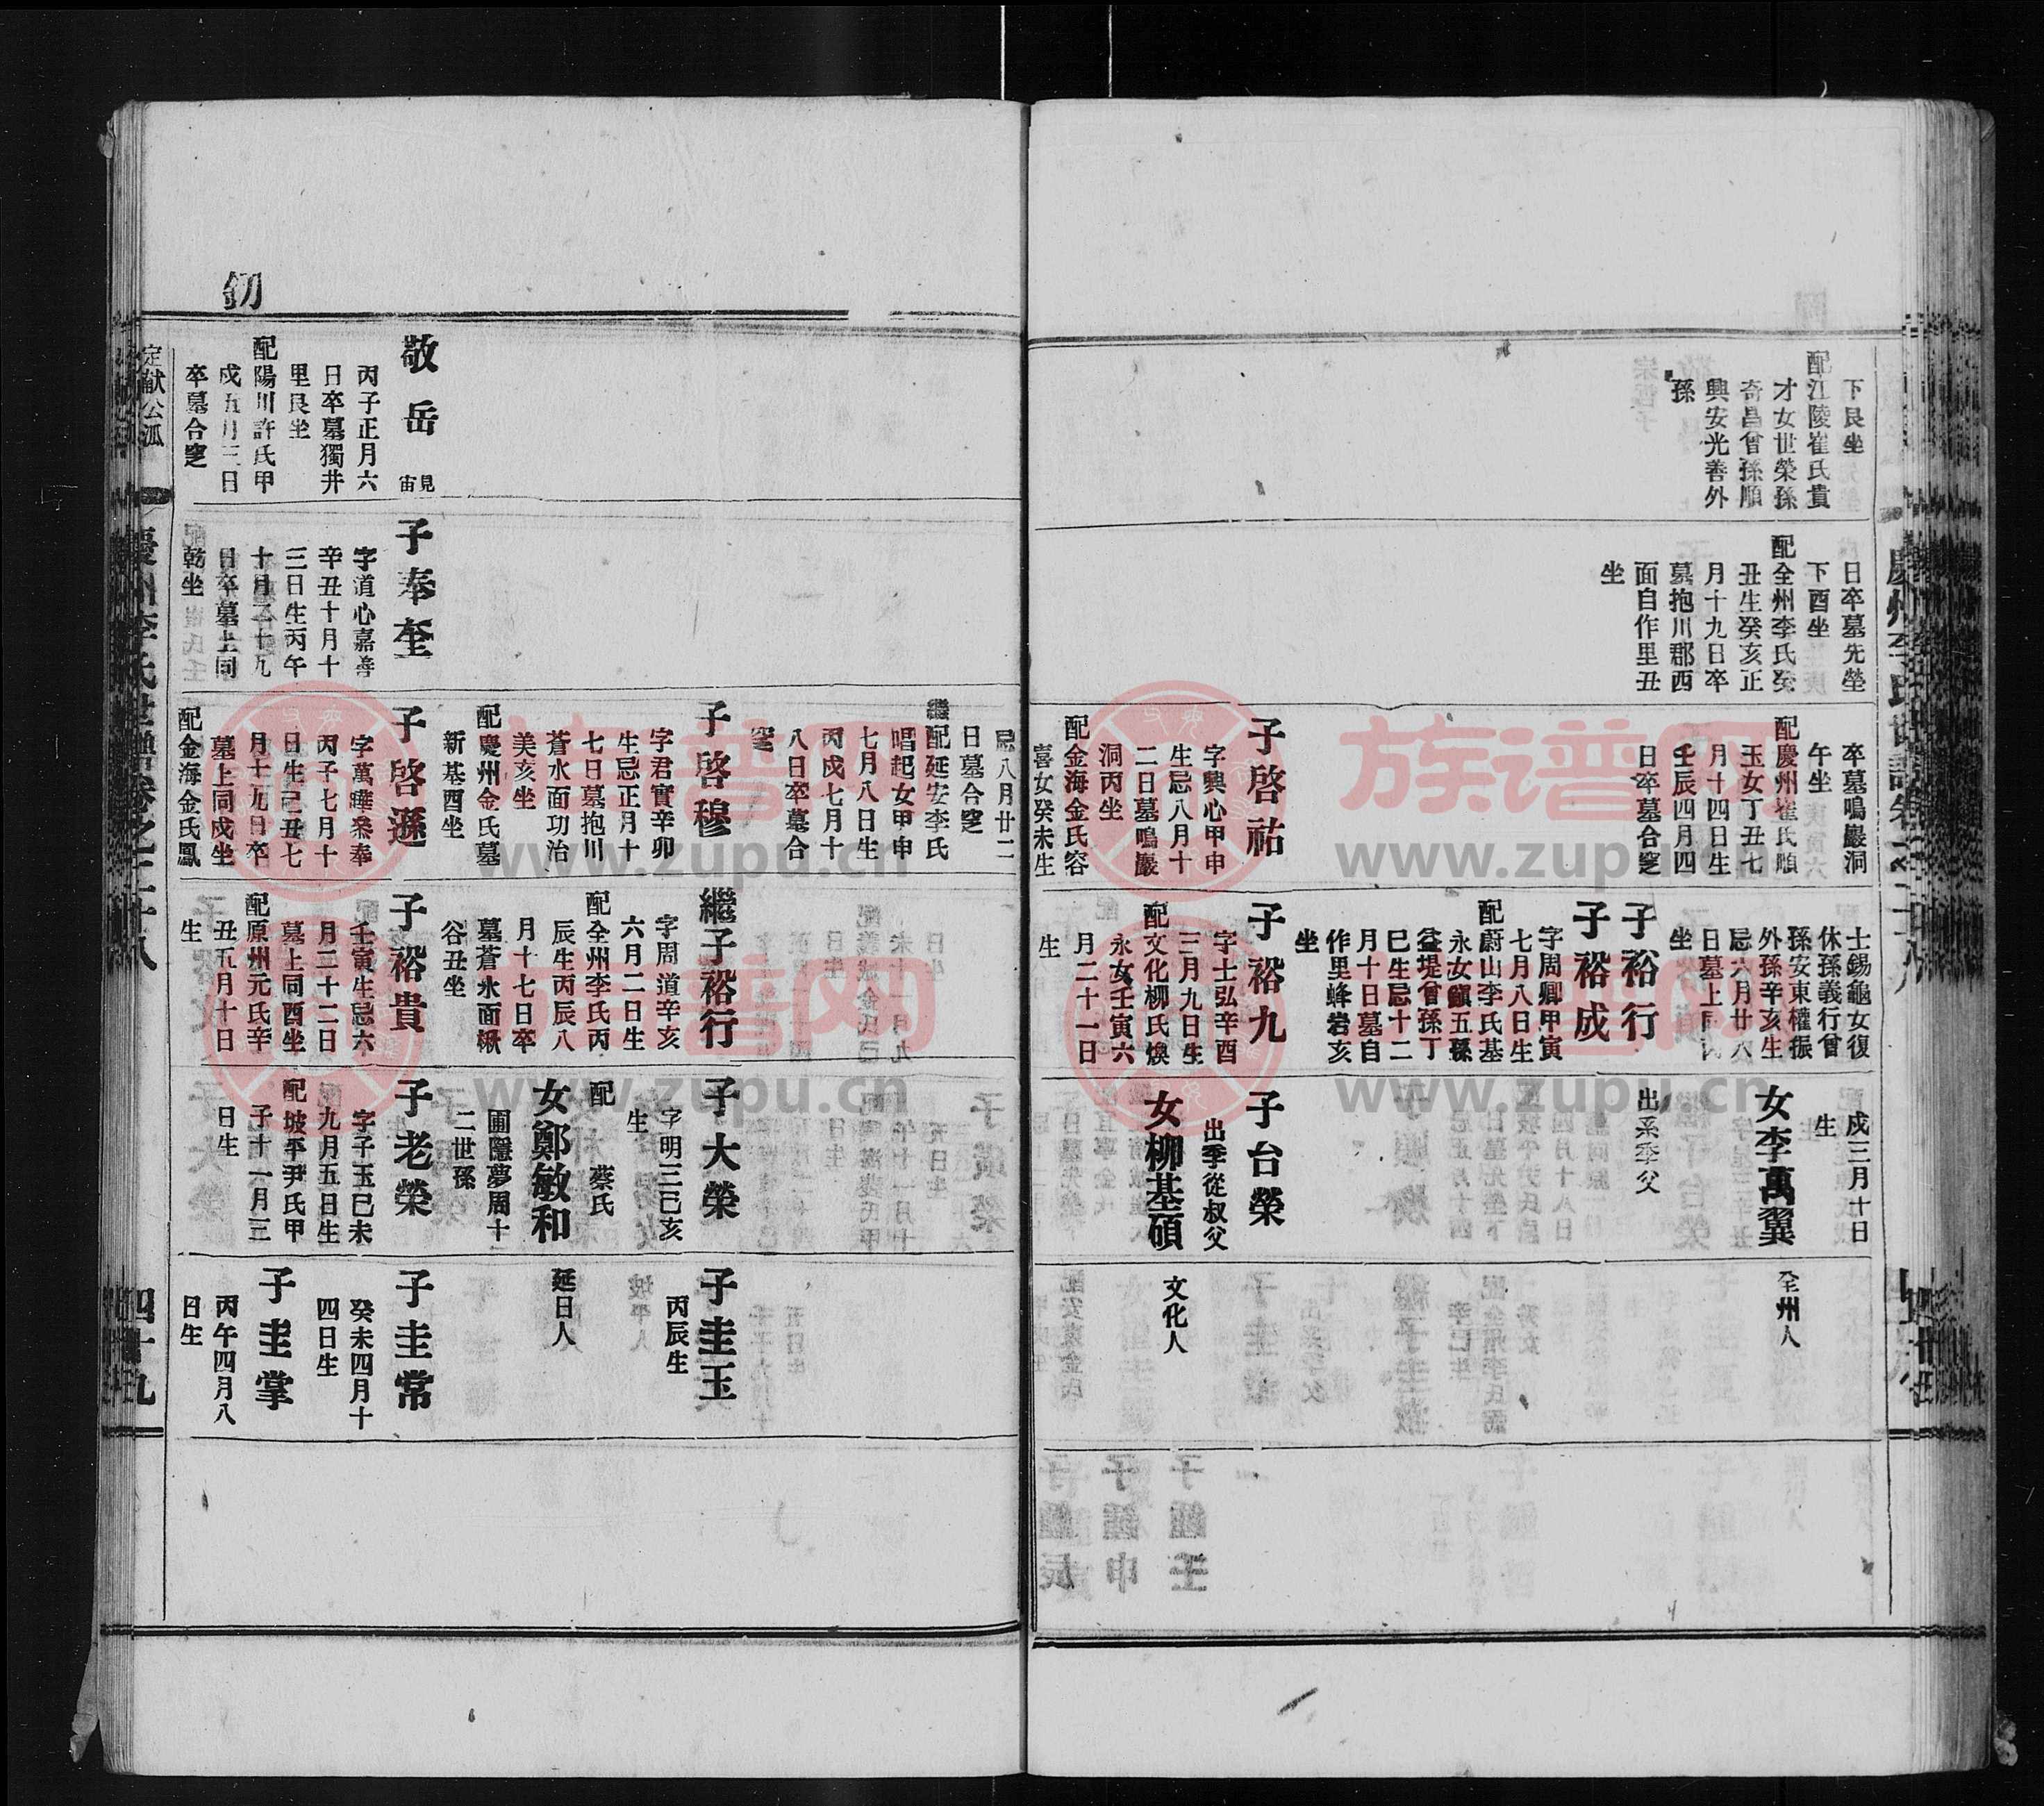 下艮坐
配江陵崔氏貴
才女世榮孫
奇昌曾孫順
興安光善外
孫
日卒墓先塋
下酉坐
配全州李氏癸
丑生癸亥正
月十九日卒
墓抱川郡西
面自作里丑
坐
卒墓鳴巖洞
午坐
配慶州崔氏順
玉女丁丑七
月十四日生
壬辰四月四
日卒墓合窆
子啓祐
字興心甲申
生忌八月十
二日墓鳴巖
洞丙坐
配金海金氏容
喜女癸未生
士錫龜女復
休孫義行曾
孫安東權振
外孫辛亥生
忌六月廿八
日墓上同
坐
子裕行
子裕成
字周卿甲寅
七月八日生
配蔚山李氏基
永女鎭五孫
益堤曾孫丁
巳生忌十二
月十日墓自
作里蜂岩亥
坐
子裕九
字士弘辛酉
三月九日生
配文化柳氏煥
永女壬寅六
月二十一日
生
戍三月十日
生
女李萬翼
出系季父
子台榮
出季從叔父
女柳基碩
全州人
文化人
慶州李氏世譜卷之二十八
釰
敬岳
見
宙
丙子正月六
日卒墓獨井
里艮坐
配陽川許氏甲
戍五月三日
卒墓合窆
子奉奎
字道心嘉善
辛丑十月十
三日生丙午
十月二十九
日卒墓上同
乾坐
忌八月廿二
日墓合窆
繼配延安李氏
唱起女甲申
七月八日生
丙戍七月十
八日卒墓合
窆
子啓穆
字君實辛卯
生忌正月十
七日墓抱川
蒼水面功治
美亥坐
配慶州金氏墓
新基酉坐
子啓遜
字萬曄參奉
丙子七月十
日生己丑七
月十九日卒
墓上同戍坐
配金海金氏鳳
繼子裕行
字周道辛亥
六月二日生
配全州李氏丙
辰生丙辰八
月十七日卒
墓蒼水面楸
谷丑坐
子裕貴
壬寅生忌六
月二十二日
墓上同酉坐
配原州元氏辛
丑五月十日
生
子大榮
字明三己亥
生
配　蔡氏
女鄭敏和
圃隱夢周十
二世孫
子老榮
字子玉己未
九月五日生
配坡平尹氏甲
子十一月三
日生
子圭玉
丙辰生
延日人
子圭常
癸未四月十
四日生
子圭掌
丙午四月八
日生
定献公派
慶州李氏世譜卷之二十八
四十九
族谱网
www.zupu.cn
族谱网
www.zupu.cn
族谱网
www.zupu.cn
族谱网
www.zupu.cn